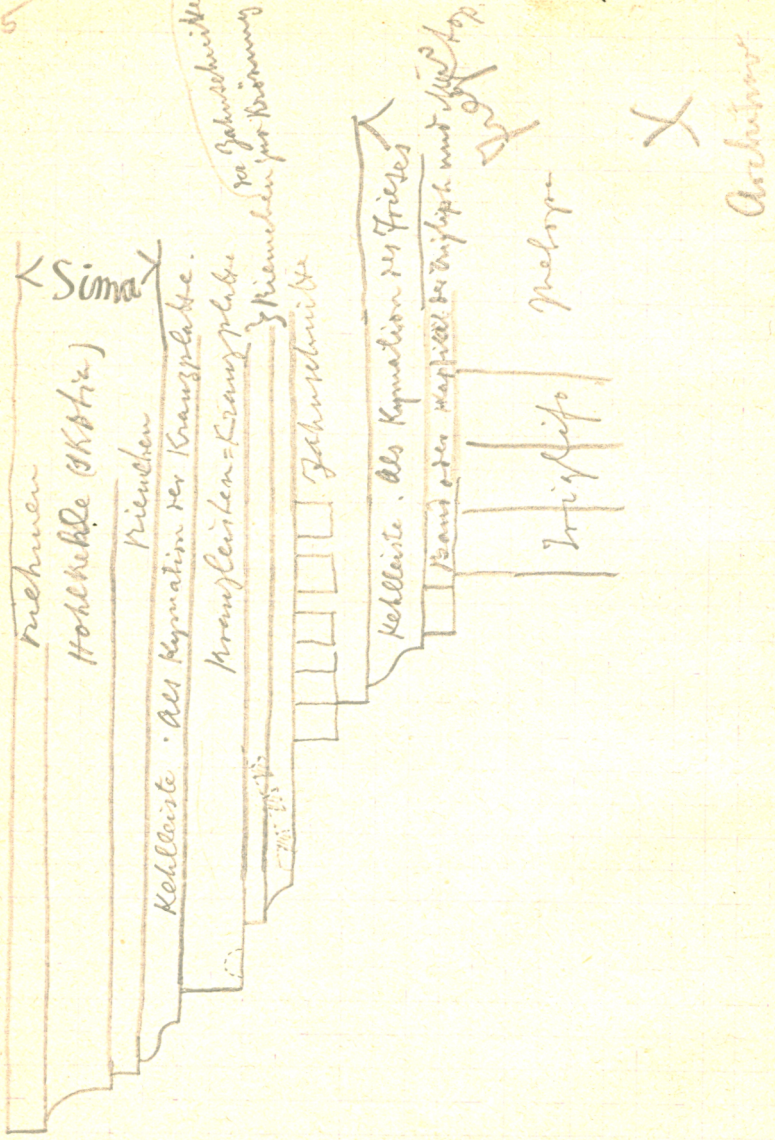 Riehmen
Sima
Hohlkehle (Skotia)
Riemchen
Kehlleiste. Als Kymation der Kranzplatte.
Kranzleisten = Kranzplatte
Riemchen zur Krönung
der Zahnschnitte
Zahnschnitte
Kehlleiste. Als Kymation des Frieses
Band oder Kapitäl der Triglyph und
Triglife
Metope
Architrav